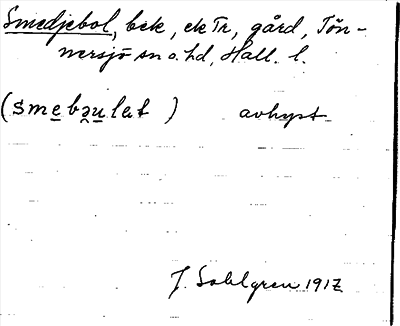 Smedjebol, bek, ek Tr, gård, Tön-
nersjö sn o. hd, Hall. l.
(smebaulat ) avhypt.
J. Sahlgren 1912